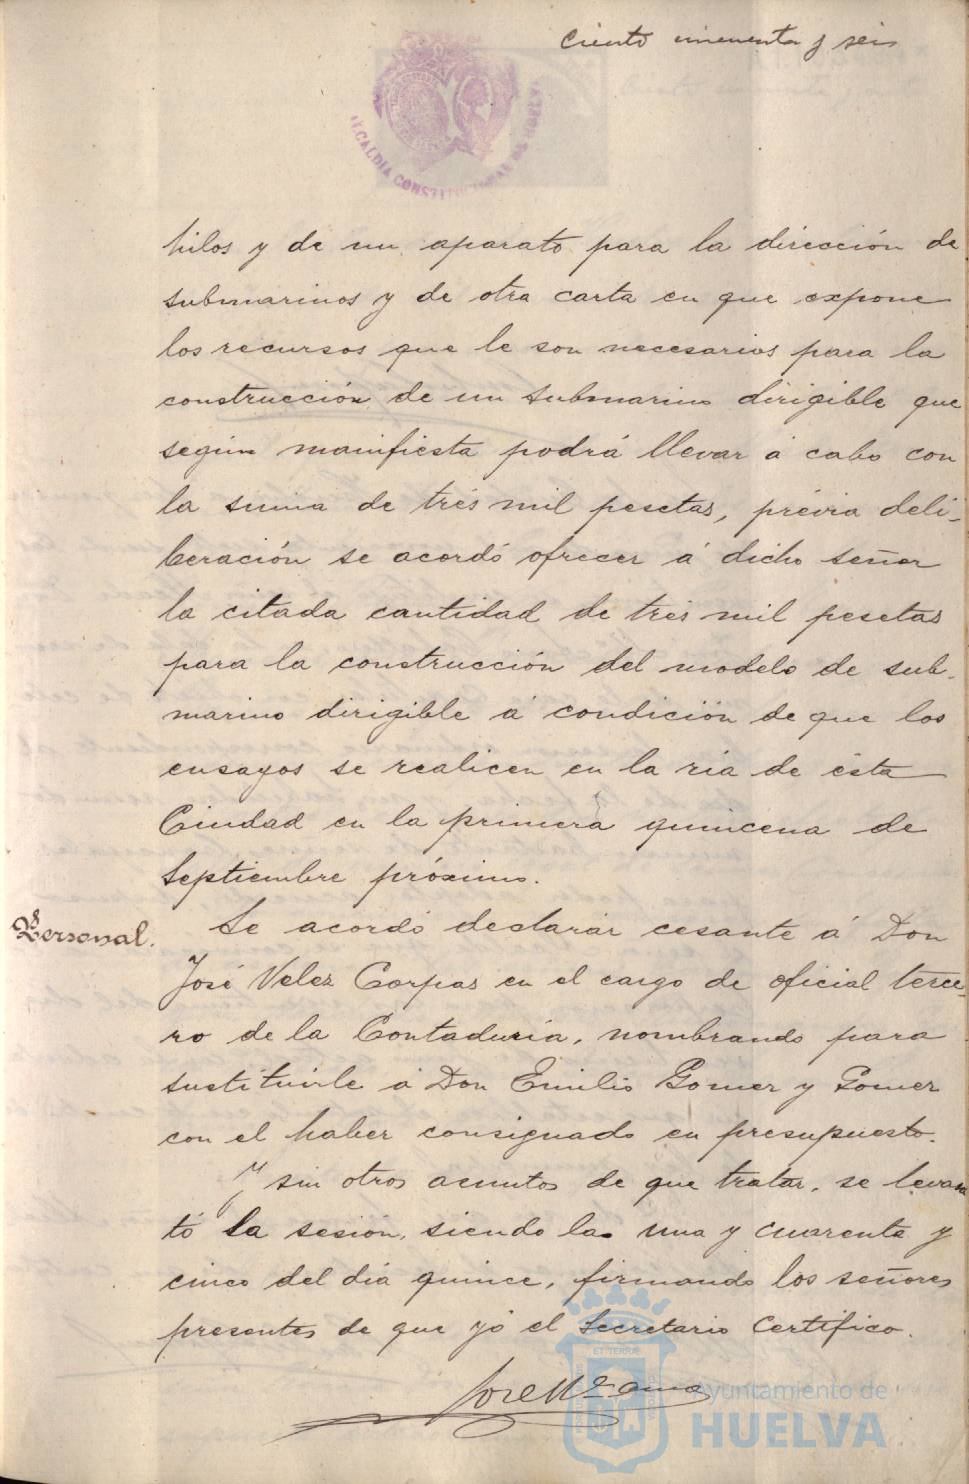 Ciento cincuenta y seis
ALCALDIA CONSTITUCIONAL DE HUELVA
hilos y de un aparato para la dirección de
submarinos y de otra carta en que expone
los recursos que le son necesarios para la
construcción de un submarino dirigible que
según manifiesta podrá llevar á cabo con
la suma de tres mil pesetas, prévia deli-
beración se acordó ofrecer á dicho señor
la citada cantidad de tres mil pesetas
para la construcción del modelo de sub-
marino dirigible á condición de que los
ensayos se realicen en la ria de ésta
Ciudad en la primera quincena de
Septiembre próximo.
Personal.
Se acordó declarar cesante á Don
José Velez Corpas en el cargo de oficial terce-
ro de la Contaduria, nombrando para
sustituirle á Don Emilio Gomez y Gomez
con el haber consignado en presupuesto.
Y sin otros asuntos de que tratar, se levan
tó la sesión, siendo la una y cuarenta y
cinco del dia quince, firmando los señores
presentes de que yó el Secretario Certifico.
José Mª
ET TERRÆ
Ayuntamiento de
HUELVA